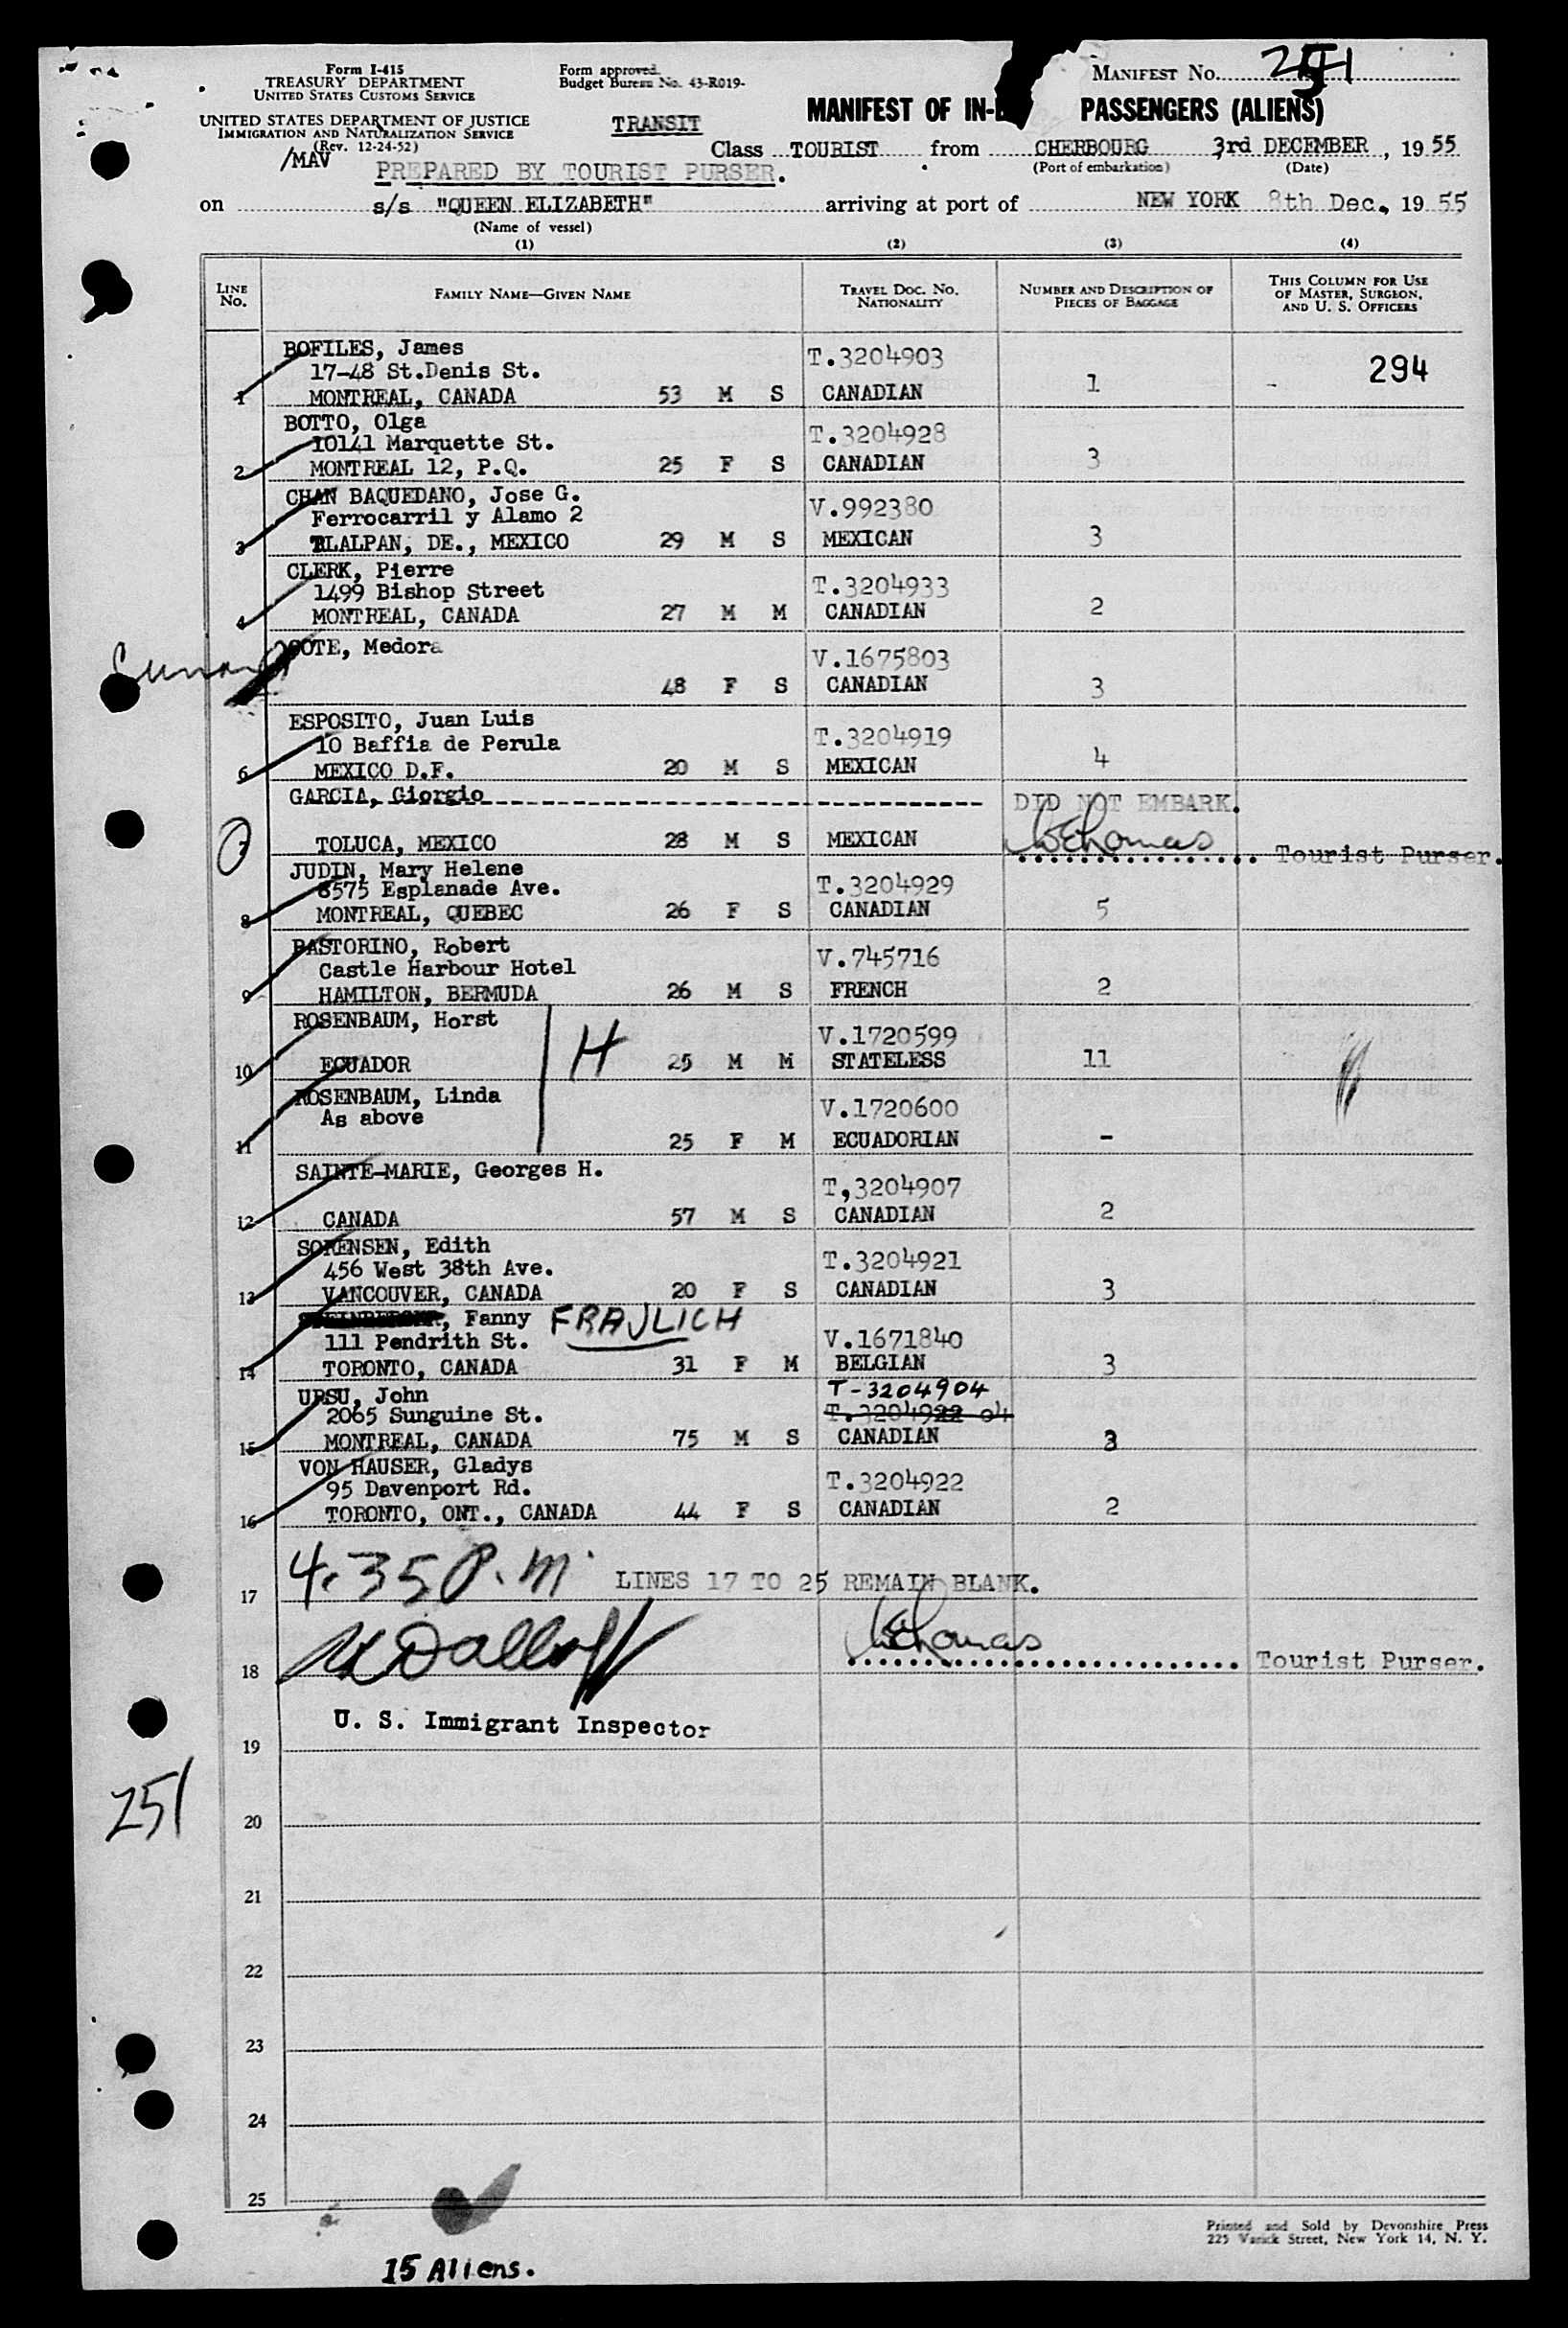 Form I-415
TREASURY DEPARTMENT
UNITED STATES CUSTOMS SERVICE
UNITED STATES DEPARTMENT OF JUSTICE
IMMIGRATION AND NATURALIZATION SERVICE
(Rev. 12-24-52)
/MAV
Form approved.
Budget Bureau No. 43-R019-
TRANSIT
PREPARED BY TOURIST PURSER.
MANIFEST No. 251
MANIFEST OF IN- PASSENGERS (ALIENS)
Class TOURIST from CHERBOURG 3rd DECEMBER, 1955
(Port of embarkation) (Date)
on s/s "QUEEN ELIZABETH" arriving at port of NEW YORK 8th Dec., 1955
(Name of vessel)
(1) (2) (3) (4)
LINE No. FAMILY NAME—GIVEN NAME TRAVEL DOC. No. NATIONALITY NUMBER AND DESCRIPTION OF PIECES OF BAGGAGE THIS COLUMN FOR USE OF MASTER, SURGEON, AND U. S. OFFICERS
BOFILES, James T.3204903 294
17-48 St.Denis St.
1 MONTREAL, CANADA 53 M S CANADIAN 1 -
BOTTO, Olga T.3204928
10141 Marquette St.
2 MONTREAL 12, P.Q. 25 F S CANADIAN 3
CHAN BAQUEDANO, Jose G. V.992380
Ferrocarril y Alamo 2
3 TLALPAN, DE., MEXICO 29 M S MEXICAN 3
CLERK, Pierre T.3204933
1499 Bishop Street
4 MONTREAL, CANADA 27 M M CANADIAN 2
COTE, Medora V.1675803
48 F S CANADIAN 3
ESPOSITO, Juan Luis T.3204919
10 Baffia de Perula
6 MEXICO D.F. 20 M S MEXICAN 4
GARCIA, Giorgio DID NOT EMBARK.
7 TOLUCA, MEXICO 28 M S MEXICAN WEThomas Tourist Purser.
JUDIN, Mary Helene T.3204929
8575 Esplanade Ave.
8 MONTREAL, QUEBEC 26 F S CANADIAN 5
PASTORINO, Robert V.745716
Castle Harbour Hotel
9 HAMILTON, BERMUDA 26 M S FRENCH 2
ROSENBAUM, Horst V.1720599
10 ECUADOR H 25 M M STATELESS 11
ROSENBAUM, Linda V.1720600
As above
11 25 F M ECUADORIAN -
SAINTE-MARIE, Georges H. T,3204907
12 CANADA 57 M S CANADIAN 2
SORENSEN, Edith T.3204921
456 West 38th Ave.
13 VANCOUVER, CANADA 20 F S CANADIAN 3
, Fanny FRAJLICH V.1671840
111 Pendrith St.
14 TORONTO, CANADA 31 F M BELGIAN 3
URSU, John T-3204904
2065 Sunguine St. T.3204922 04
15 MONTREAL, CANADA 75 M S CANADIAN 3
VON HAUSER, Gladys T.3204922
95 Davenport Rd.
16 TORONTO, ONT., CANADA 44 F S CANADIAN 2
17 4.35 P.m. LINES 17 TO 25 REMAIN BLANK.
18 WEThomas Tourist Purser.
U. S. Immigrant Inspector
19
251
20
21
22
23
24
25
Printed and Sold by Devonshire Press
225 Varick Street, New York 14, N. Y.
15 Aliens.